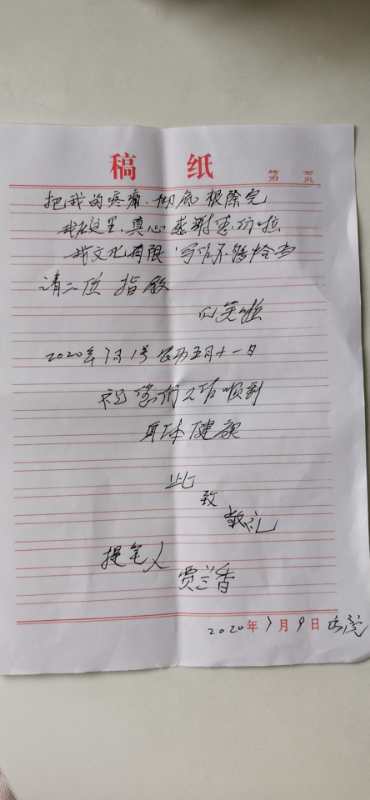 稿 纸
第 页
把我的疼痛.彻底根除完
我在这里.真心感谢
我文化有限.写的不够恰当
请二位 指教
见笑啦
2020年7月1号 农历五月十一日
祝 学术工作顺利
身体健康
此
致
敬礼
提笔人
贾兰香
2020年7月9日 出院